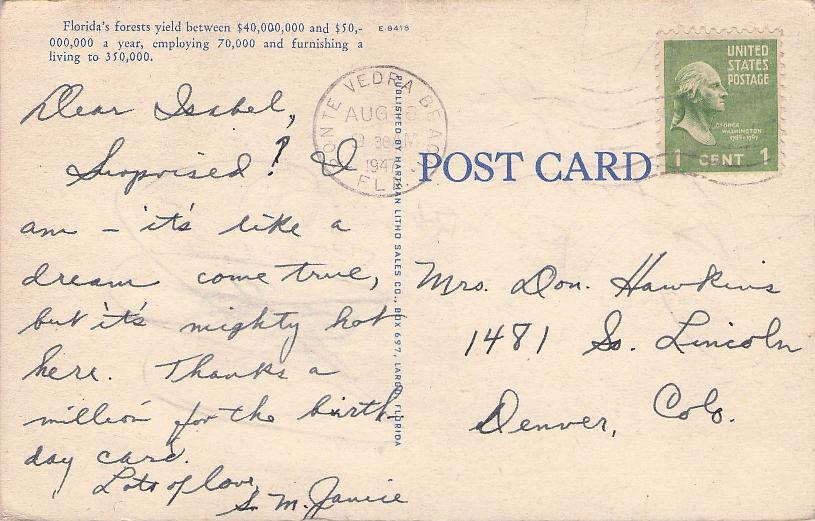 Florida's forests yield between $40,000,000 and $50,-
000,000 a year, employing 70,000 and furnishing a
living to 350,000.
E-8418
Dear Isabel,
Surprised? I
am – it's like a
dream come true,
but it's mighty hot
here. Thanks a
million for the birth
day card.
Lots of love,
S. M. Janice
PONTE VEDRA BEACH
AUG
30 AM
194
FLA.
PUBLISHED BY HARTMAN LITHO SALES CO., BOX 697, LARGO, FLORIDA
UNITED
STATES
POSTAGE
GEORGE
WASHINGTON
1789-1797
1 CENT 1
POST CARD
Mrs. Don. Hawkins
1481 So. Lincoln
Denver, Colo.